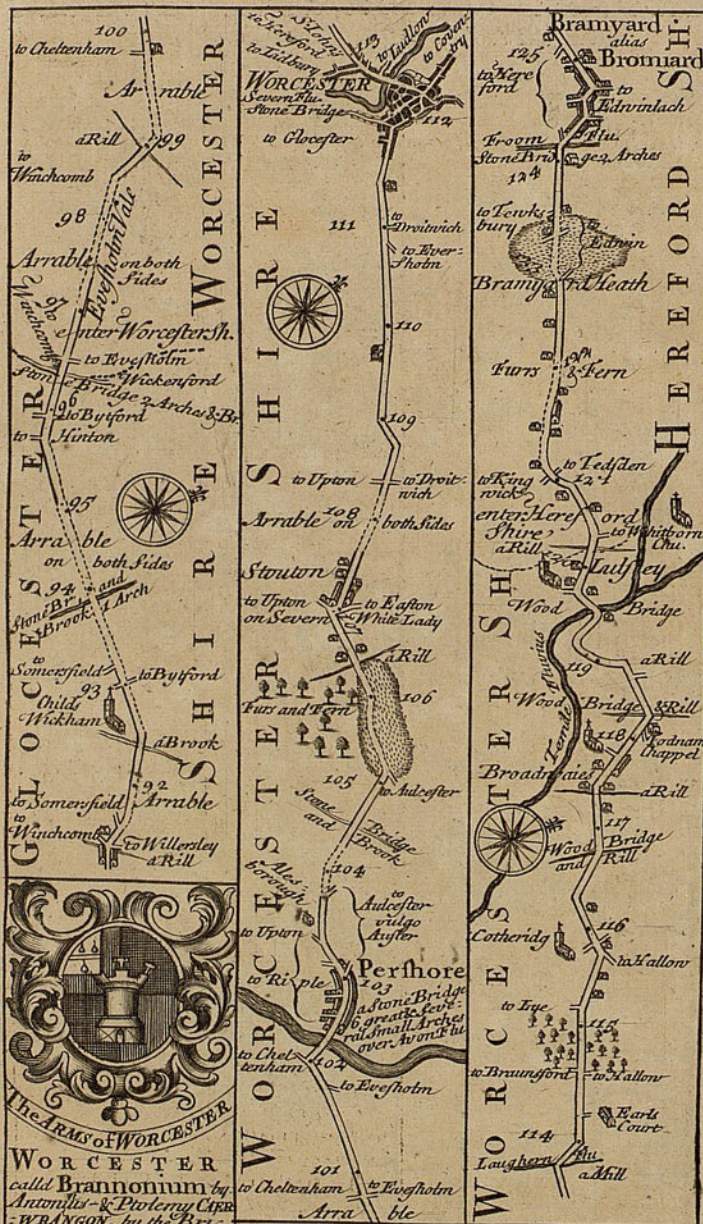 100
to Cheltenham
Arrable
a Rill
99
to Winchcomb
98
Evesholm Vale
Arrable on both Sides
97
to Winchcomb
enter Worcester Sh.
to Evesholm
Wickenford
Stone Bridge 2 Arches & Br.
96
to Bytford
to Hinton
95
Arrable on both Sides
94
Stone Br. and Brook 1 Arch
to Somersfield
to Bytford
93
Childs Wickham
a Brook
92
to Somersfield
Arrable
to Winchcomb
to Willersley
a Rill
GLOCESTER SHIRE
WORCESTER
The ARMS of WORCESTER
WORCESTER
calld Brannonium by
Antoninus & Ptolemy CAER
WRANGON by the Bri-
St. Johns
to Hereford
113
to Ludlow
to Ludbury
to Coventry
WORCESTER
Severn Flu.
Stone Bridge
112
to Glocester
111
to Droitwich
to Eversholm
110
109
to Upton
to Droitwich
108
Arrable on both Sides
Stouton
to Upton on Severn
to Easton
White Lady
a Rill
Furs and Fern
106
105
to Aulcester
Stone Bridge and Brook
104
Alesborough
to Aulcester vulgo Auster
to Upton
Pershore
to Riple
103
a Stone Bridge
6 great & seve-
ral small Arches
over Avon Flu
to Cheltenham
102
to Evesholm
101
to Cheltenham
to Evesholm
Arrable
WORCESTER SHIRE
Bramyard
alias
Bromiard
125
to Hereford
to Edvinlach
Froom Flu.
Stone Bridge 2 Arches
124
to Tewksbury
to Edwin
Bramyard Heath
Furrs & Fern
to Tedsden
to Kingwick
121
enter Hereford Shire
to Whitborn Chu.
a Rill
Lulsley
Wood Bridge
Temde Fluvius
119
a Rill
Wood Bridge & Rill
118
Codnam Chappel
Broadwaies
a Rill
117
Wood Bridge and Rill
116
Cotheridg
to Hallow
to Lye
115
to Braunsford
to Hallow
Earls Court
114
Laughern Flu
a Mill
WORCESTER SH
HEREFORD SH.